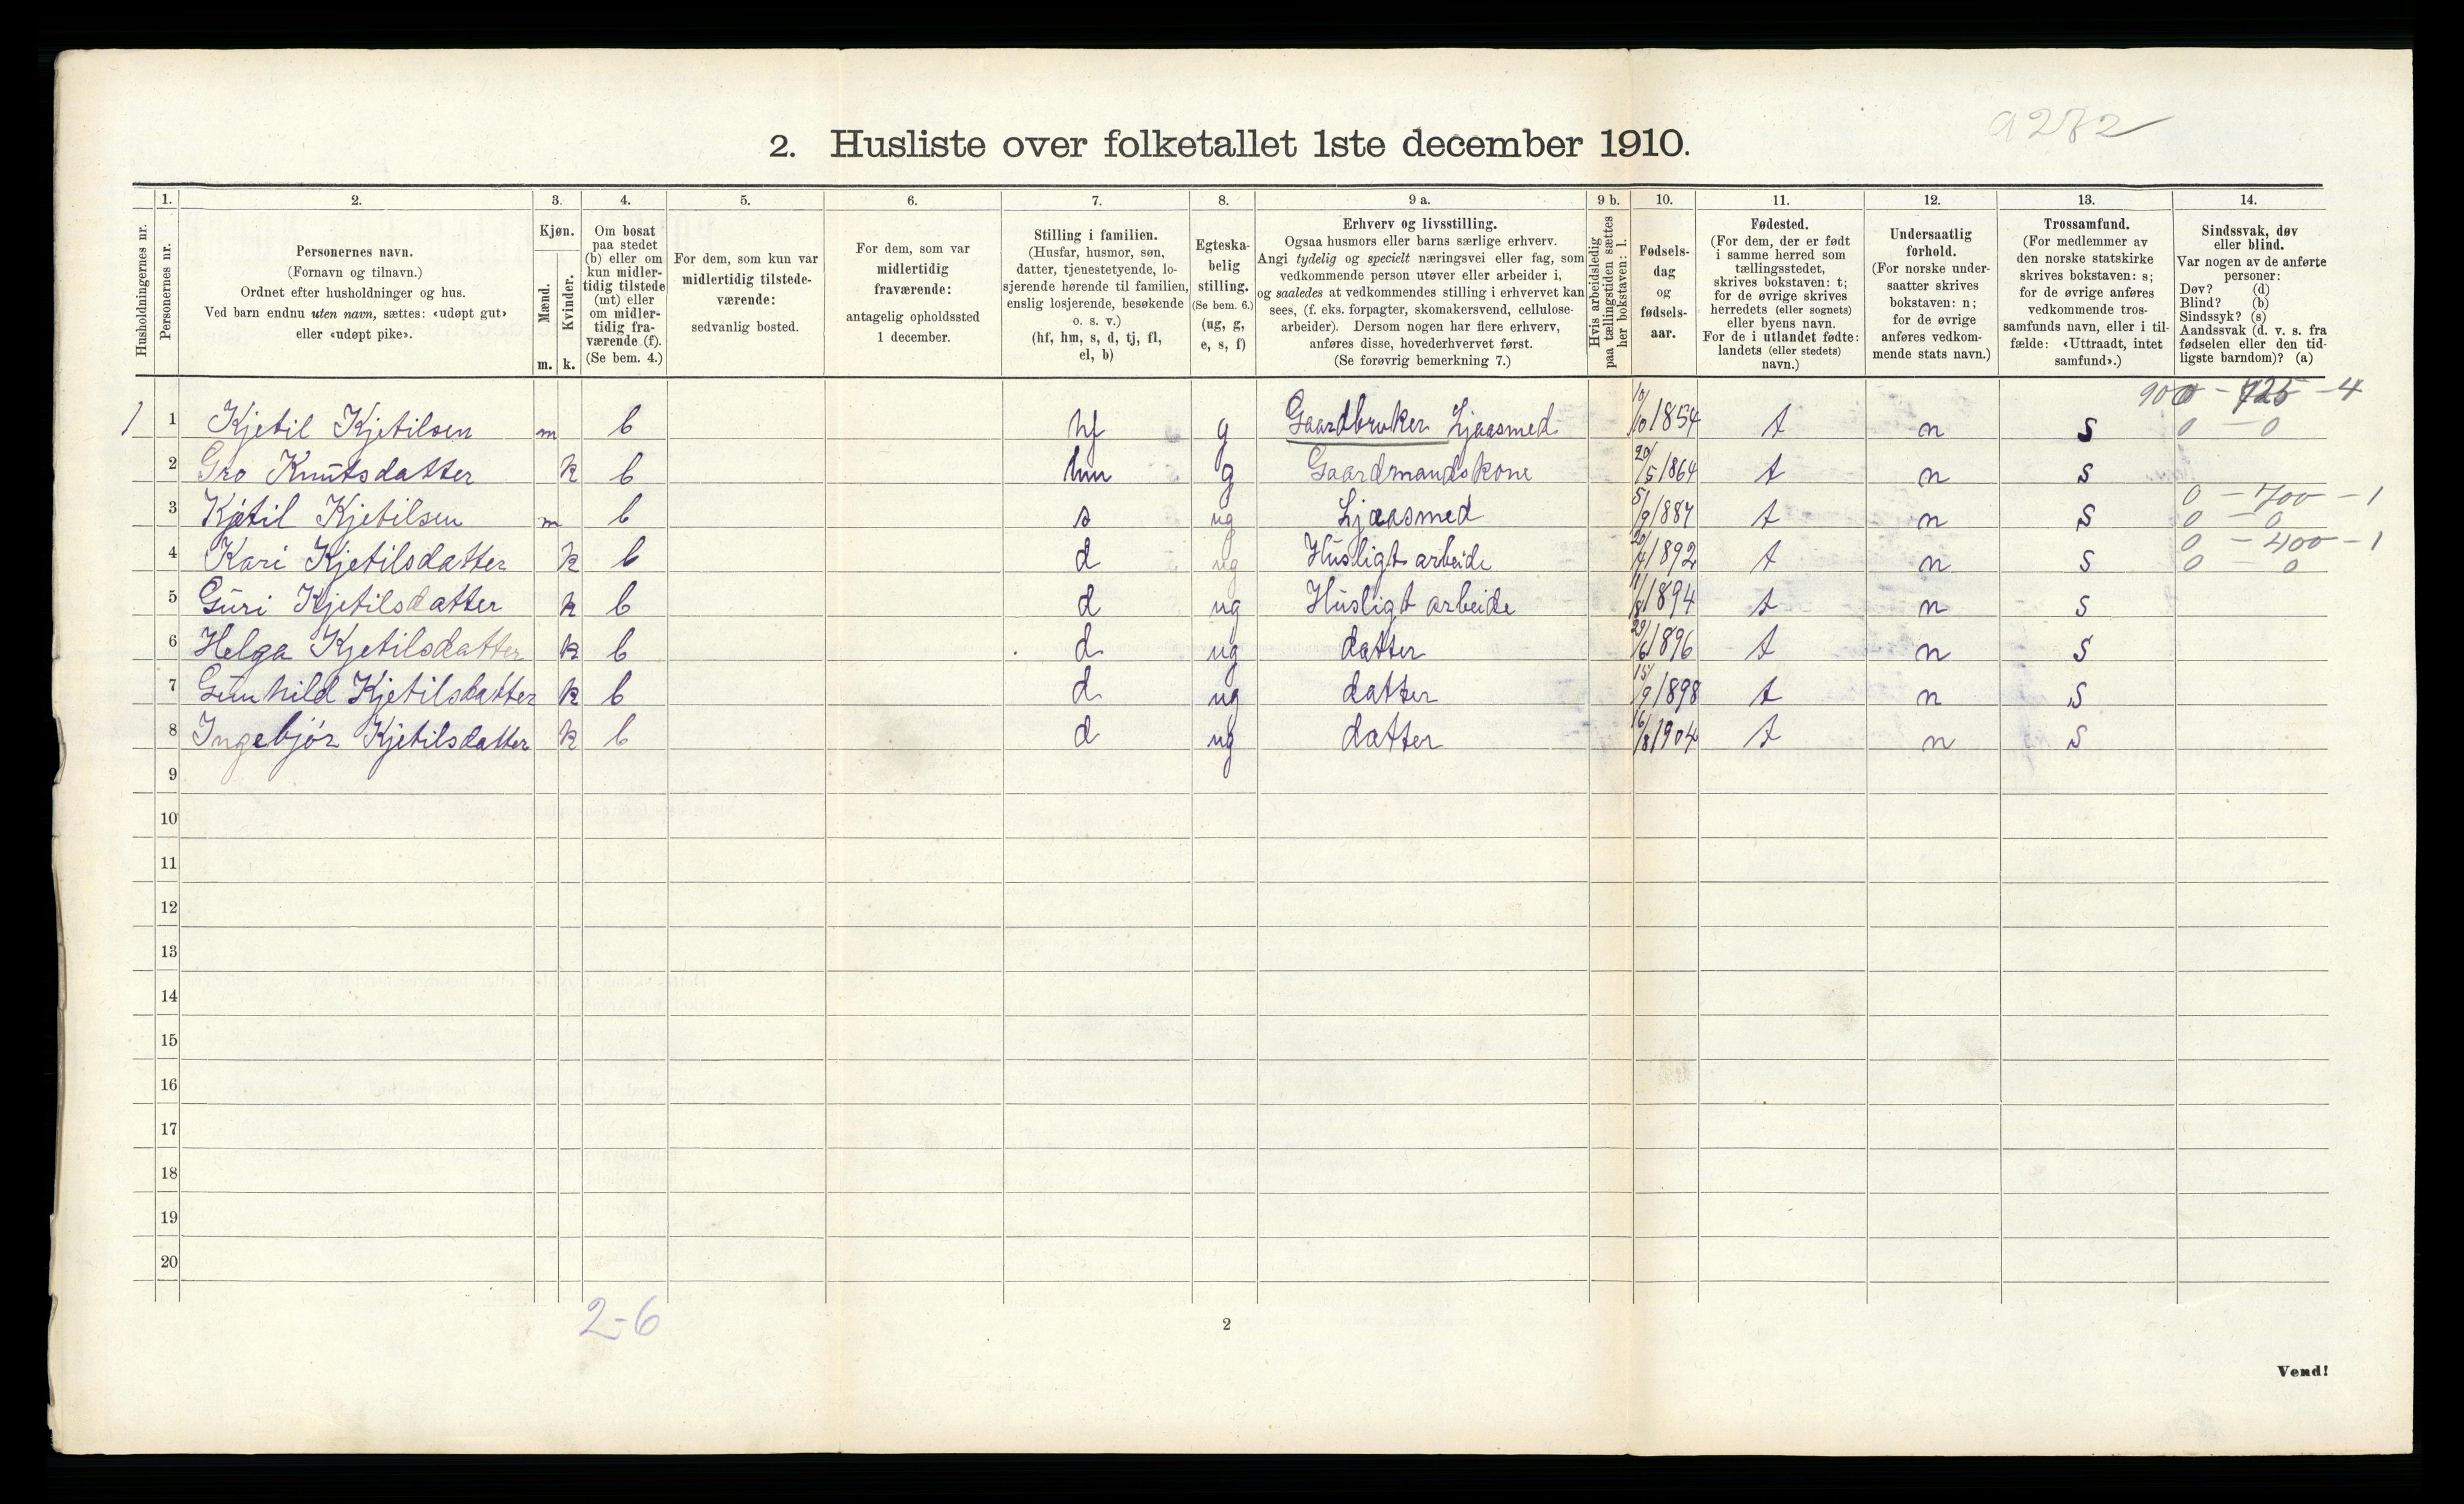 a282
2. Husliste over folketallet 1ste december 1910.
1. 2. 3. 4. 5. 6. 7. 8. 9 a. 9 b. 10. 11. 12. 13. 14.
Husholdningernes nr.
Personernes nr.
Personernes navn.
(Fornavn og tilnavn.)
Ordnet efter husholdninger og hus.
Ved barn endnu uten navn, sættes: «udøpt gut»
eller «udøpt pike».
Kjøn.
Mænd.
Kvinder.
m. k.
Om bosat
paa stedet
(b) eller om
kun midler-
tidig tilstede
(mt) eller
om midler-
tidig fra-
værende (f).
(Se bem. 4.)
For dem, som kun var
midlertidig tilstede-
værende:
sedvanlig bosted.
For dem, som var
midlertidig
fraværende:
antagelig opholdssted
1 december.
Stilling i familien.
(Husfar, husmor, søn,
datter, tjenestetyende, lo-
sjerende hørende til familien,
enslig losjerende, besøkende
o. s. v.)
(hf, hm, s, d, tj, fl,
el, b)
Egteska-
belig
stilling.
(Se bem. 6.)
(ug, g,
e, s, f)
Erhverv og livsstilling.
Ogsaa husmors eller barns særlige erhverv.
Angi tydelig og specielt næringsvei eller fag, som
vedkommende person utøver eller arbeider i,
og saaledes at vedkommendes stilling i erhvervet kan
sees, (f. eks. forpagter, skomakersvend, cellulose-
arbeider). Dersom nogen har flere erhverv,
anføres disse, hovederhvervet først.
(Se forøvrig bemerkning 7.)
Hvis arbeidsledig
paa tællingstiden sættes
her bokstaven: l.
Fødsels-
dag
og
fødsels-
aar.
Fødested.
(For dem, der er født
i samme herred som
tællingsstedet,
skrives bokstaven: t;
for de øvrige skrives
herredets (eller sognets)
eller byens navn.
For de i utlandet fødte:
landets (eller stedets)
navn.)
Undersaatlig
forhold.
(For norske under-
saatter skrives
bokstaven: n;
for de øvrige
anføres vedkom-
mende stats navn.)
Trossamfund.
(For medlemmer av
den norske statskirke
skrives bokstaven: s;
for de øvrige anføres
vedkommende tros-
samfunds navn, eller i til-
fælde: «Uttraadt, intet
samfund».)
Sindssvak, døv
eller blind.
Var nogen av de anførte
personer:
Døv? (d)
Blind? (b)
Sindssyk? (s)
Aandssvak (d. v. s. fra
fødselen eller den tid-
ligste barndom)? (a)
900 - 725 - 4
1 1 Kjetil Kjetilsen m b hf g Gaardbruker Ljaasmed 10/10 1854 t n s 0 - 0
2 Gro Knutsdatter k b hm g Gaardmandskone 20/5 1864 t n s
0 - 700 - 1
3 Kjetil Kjetilsen m b s ug Ljaasmed 5/9 1887 t n s 0 - 0
0 - 400 - 1
4 Kari Kjetilsdatter k b d ug Husligt arbeide 1892 t n s 0 - 0
5 Guri Kjetilsdatter k b d ug Husligt arbeide 11/8 1894 t n s
6 Helga Kjetilsdatter k b d ug datter 29/6 1896 t n s
7 Gunhild Kjetilsdatter k b d ug datter 15/9 1898 t n s
8 Ingebjør Kjetilsdatter k b d ug datter 16/8 1904 t n s
9
10
11
12
13
14
15
16
17
18
19
20
2-6
2
Vend!